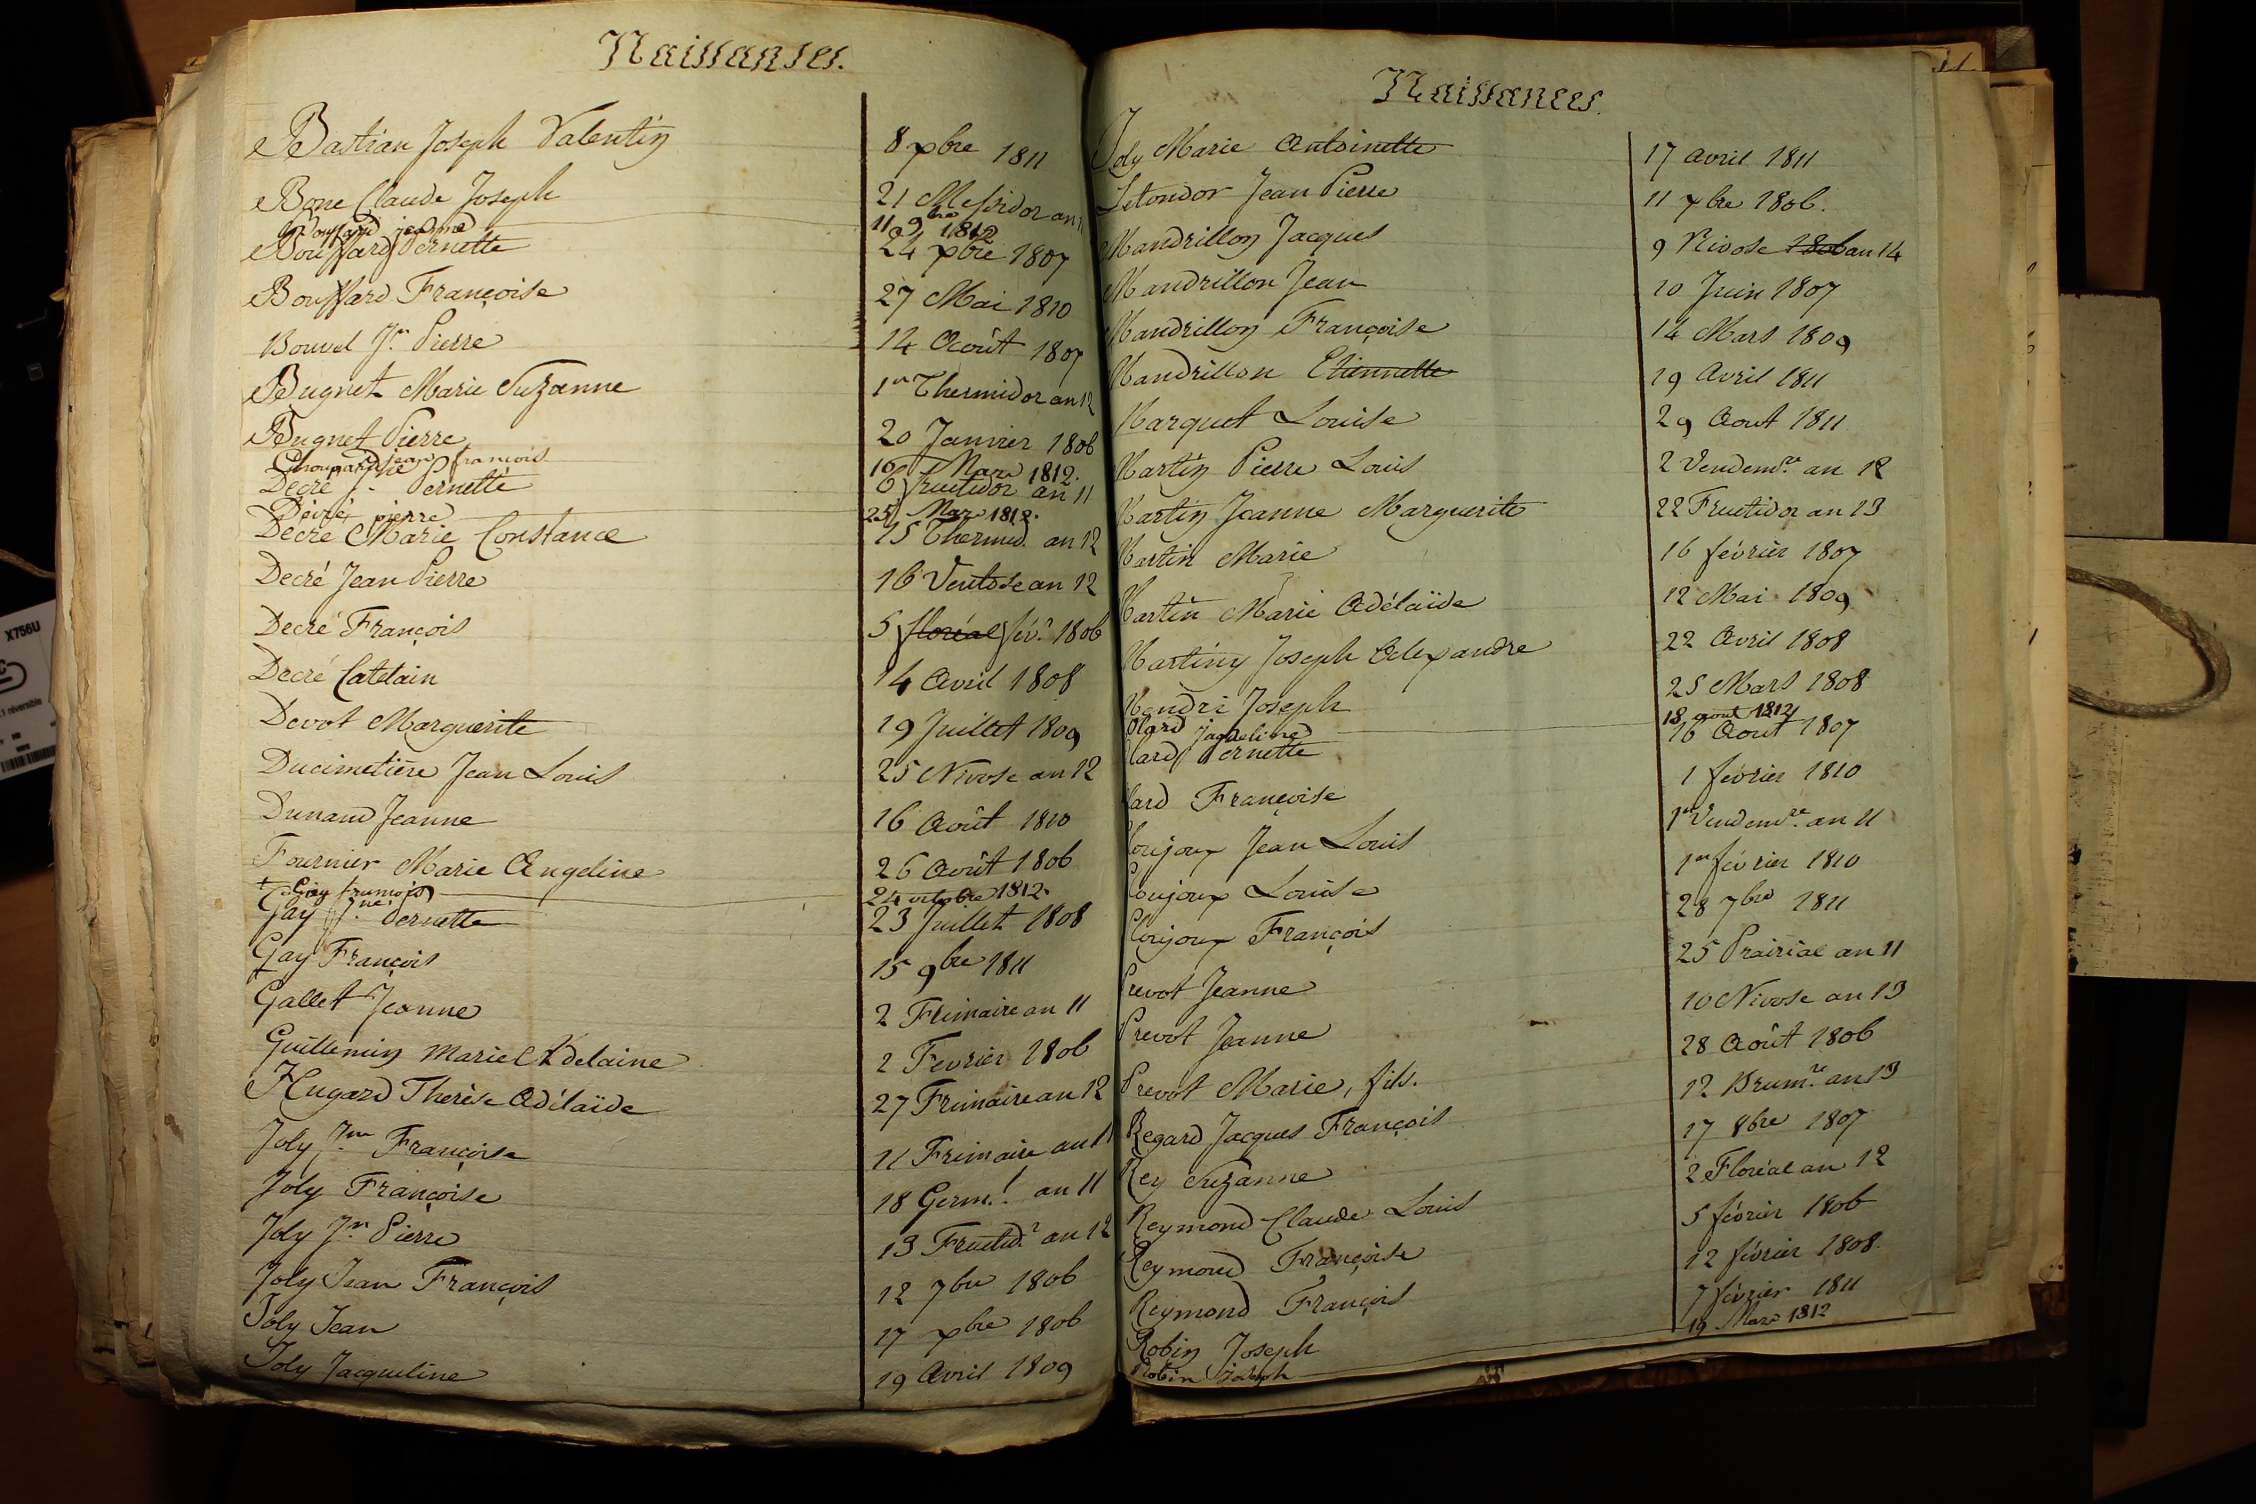 Naissances.
Bastian Joseph Valentin 8 xbre 1811
Bone Claude Joseph 21 Messidor an 11
Bouffard jeanne 11 9bre 1812
Bouffard Pernette 24 xbre 1807
Bouffard Françoise 27 Mai 1810
Bouvel Jn Pierre 14 Août 1807
Bugnet Marie Suzanne 1er Thermidor an 12
Bugnet Pierre 20 Janvier 1806
Choupard jean francois 16 Mars 1812.
Decré Jne Pernette 6 fructidor an 11
Decré pierre 25 Mars 1812.
Decré Marie Constance 15 Thermid. an 12
Decré Jean Pierre 16 Ventose an 12
Decré François 5 floréal fév.r 1806
Decré Catelain 14 Avril 1808
Devot Marguerite 19 Juillet 1809
Ducimetière Jean Louis 25 Nivose an 12
Dunand Jeanne 16 Août 1810
Fournier Marie Angeline 26 Août 1806
Gay francois 24 octobre 1812.
Gay Jne Pernette 23 Juillet 1808
Gay François 15 9bre 1811
Gallet Jeanne 2 Frimaire an 11
Guillemin Marie Adelaine 2 Fevrier 1806
Hugard Therèse Adélaïde 27 Frimaire an 12
Joly Jne Françoise 11 Frimaire an 11
Joly Françoise 18 Germ.l an 11
Joly Jn Pierre 13 Fructid.r an 12
Joly Jean François 12 7bre 1806
Joly Jean 17 xbre 1806
Joly Jacqueline 19 Avril 1809
Naissances.
Joly Marie Antoinette 17 Avril 1811
Letondor Jean Pierre 11 xbre 1806.
Mandrillon Jacques 9 Nivose 1806 an 14
Mandrillon Jean 10 Juin 1807
Mandrillon Françoise 14 Mars 1809
Mandrillon Etiennette 19 Avril 1811
Marquet Louise 29 Aout 1811
Martin Pierre Louis 2 Vendem.re an 12
Martin Jeanne Marguerite 22 Fructidor an 13
Martin Marie 16 février 1807
Martin Marie Adélaïde 12 Mai 1809
Martiny Joseph Alexandre 22 Avril 1808
Mendri Joseph 25 Mars 1808
Olard jaqueline 18 aout 1812
lard Pernette 16 Aout 1807
lard Françoise 1 février 1810
loujoux Jean Louis 1er Vendem.re an 11
loujoux Louise 1er février 1810
loujoux François 28 7bre 1811
Prevot Jeanne 25 Prairial an 11
Prevot Jeanne 10 Nivose an 13
Prevot Marie, fils. 28 Août 1806
Regard Jacques François 12 Brum.re an 13
Rey Suzanne 17 8bre 1807
Reymond Claude Louis 2 Floréal an 12
Reymond Françoise 5 février 1806
Reymond François 12 février 1808.
Robin Joseph 7 février 1811
Robin joseph 19 Mars 1812
X756U